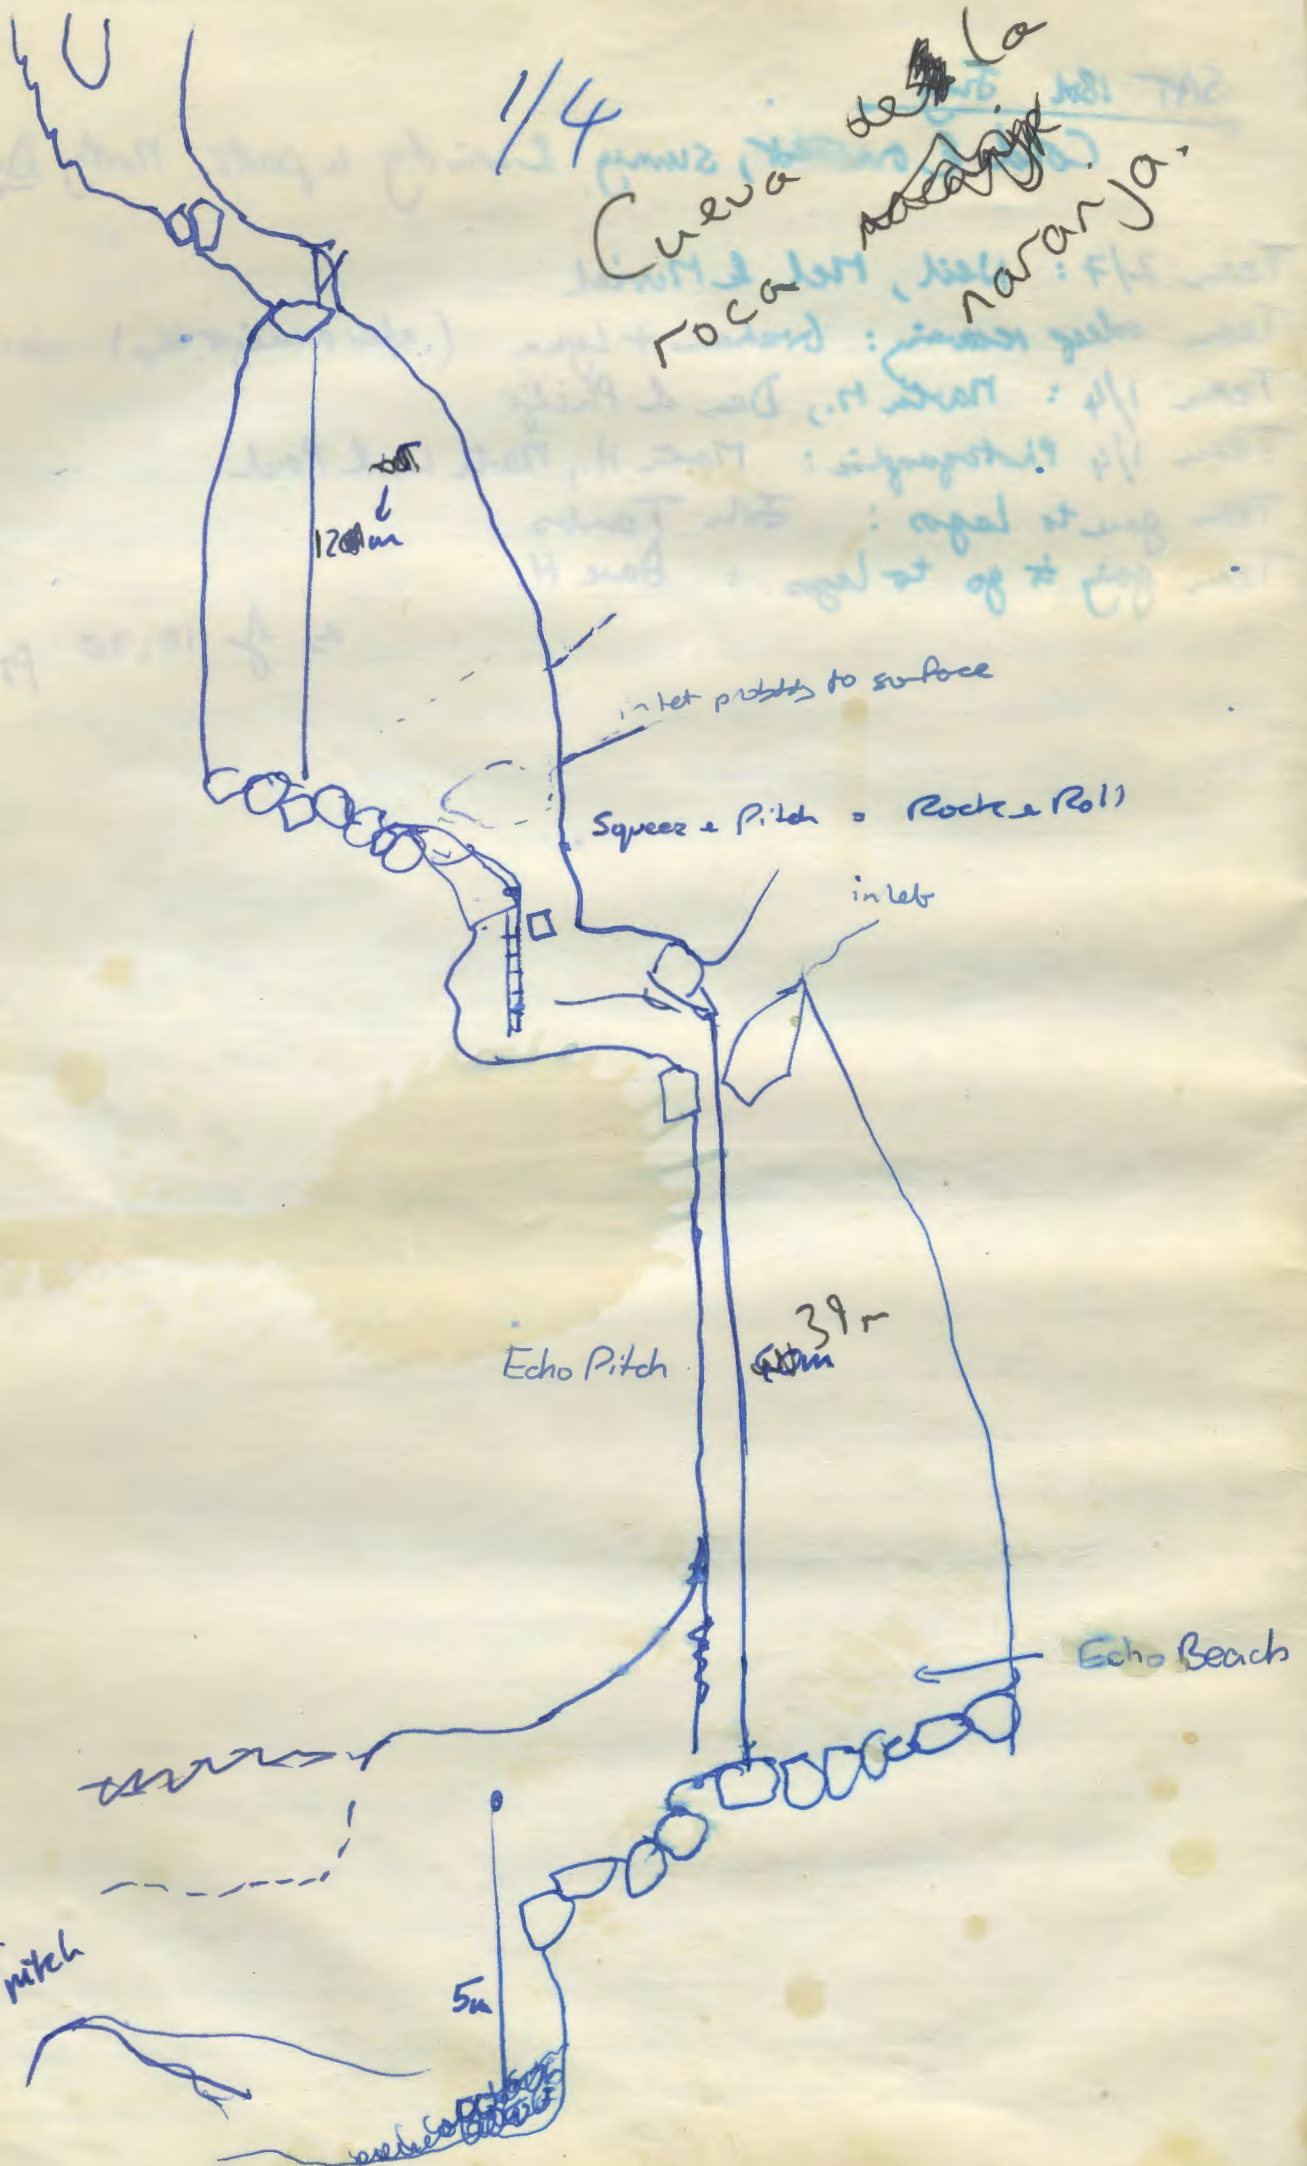 1/4
Cueva de la
roca
naranja.
12m
inlet probably to surface
Squeeze Pitch = Rock e Roll
inlet
Echo Pitch
39m
Echo Beach
pitch
5m